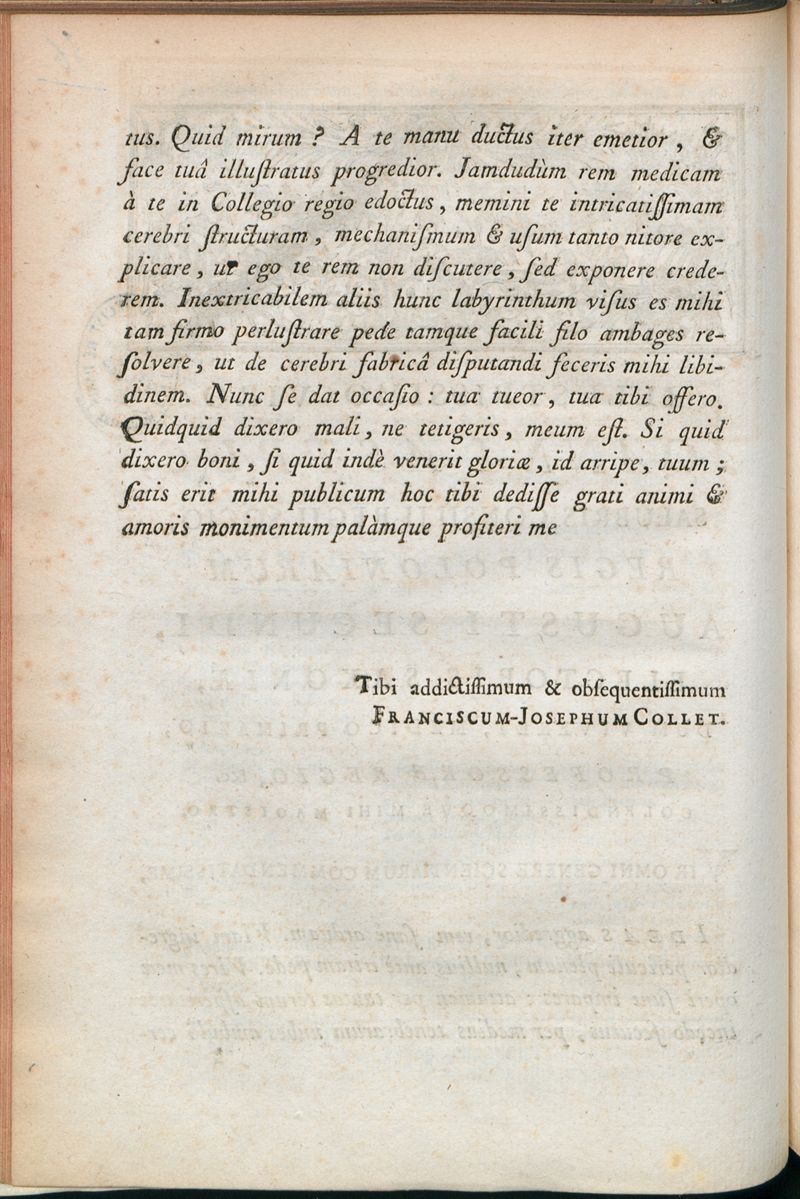 tus. Quid mirum ? A te manu ductus iter emetior , &
face tuâ illuſtratus progredior. Jamdudùm rem medicam
à te in Collegio regio edoctus , memini te intricatiſſimam
cerebri ſtructuram , mechaniſmum & uſum tanto nitore ex-
plicare , ut ego te rem non diſcutere , ſed exponere crede-
rem. Inextricabilem aliis hunc labyrinthum viſus es mihi
tam firmo perluſtrare pede tamque facili filo ambages re-
ſolvere , ut de cerebri fabricâ diſputandi feceris mihi libi-
dinem. Nunc ſe dat occaſio : tua tueor , tua tibi offero.
Quidquid dixero mali , ne tetigeris , meum eſt. Si quid
dixero boni , ſi quid indè venerit gloriæ , id arripe , tuum ;
ſatis erit mihi publicum hoc tibi dediſſe grati animi &
amoris monimentum palàmque profiteri me
Tibi addictiſſimum & obſequentiſſimum
FRANCISCUM-JOSEPHUM COLLET.